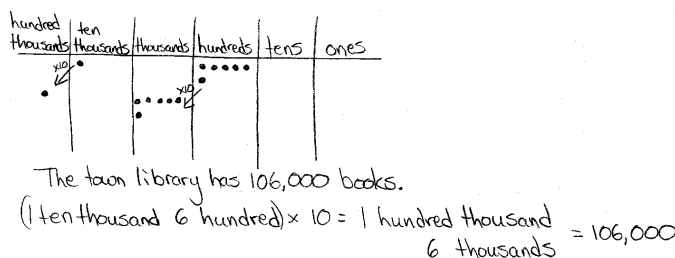 hundred thousands | ten thousands | thousands | hundreds | tens | ones
x10
x10
The town library has 106,000 books.
(1 ten thousand 6 hundred) x 10 = 1 hundred thousand
6 thousands = 106,000